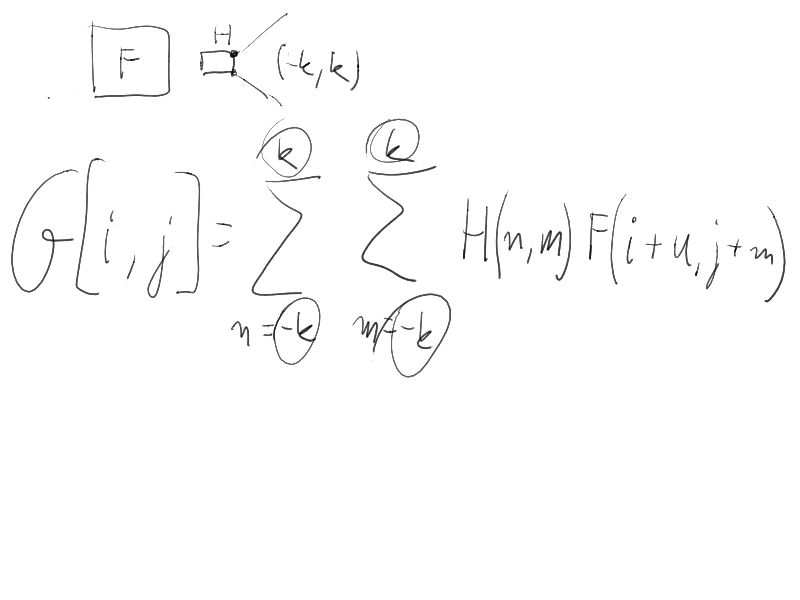 H
F (-k, k)
G[i, j] = ∑_{n=-k}^{k} ∑_{m=-k}^{k} H(n, m) F(i+u, j+m)